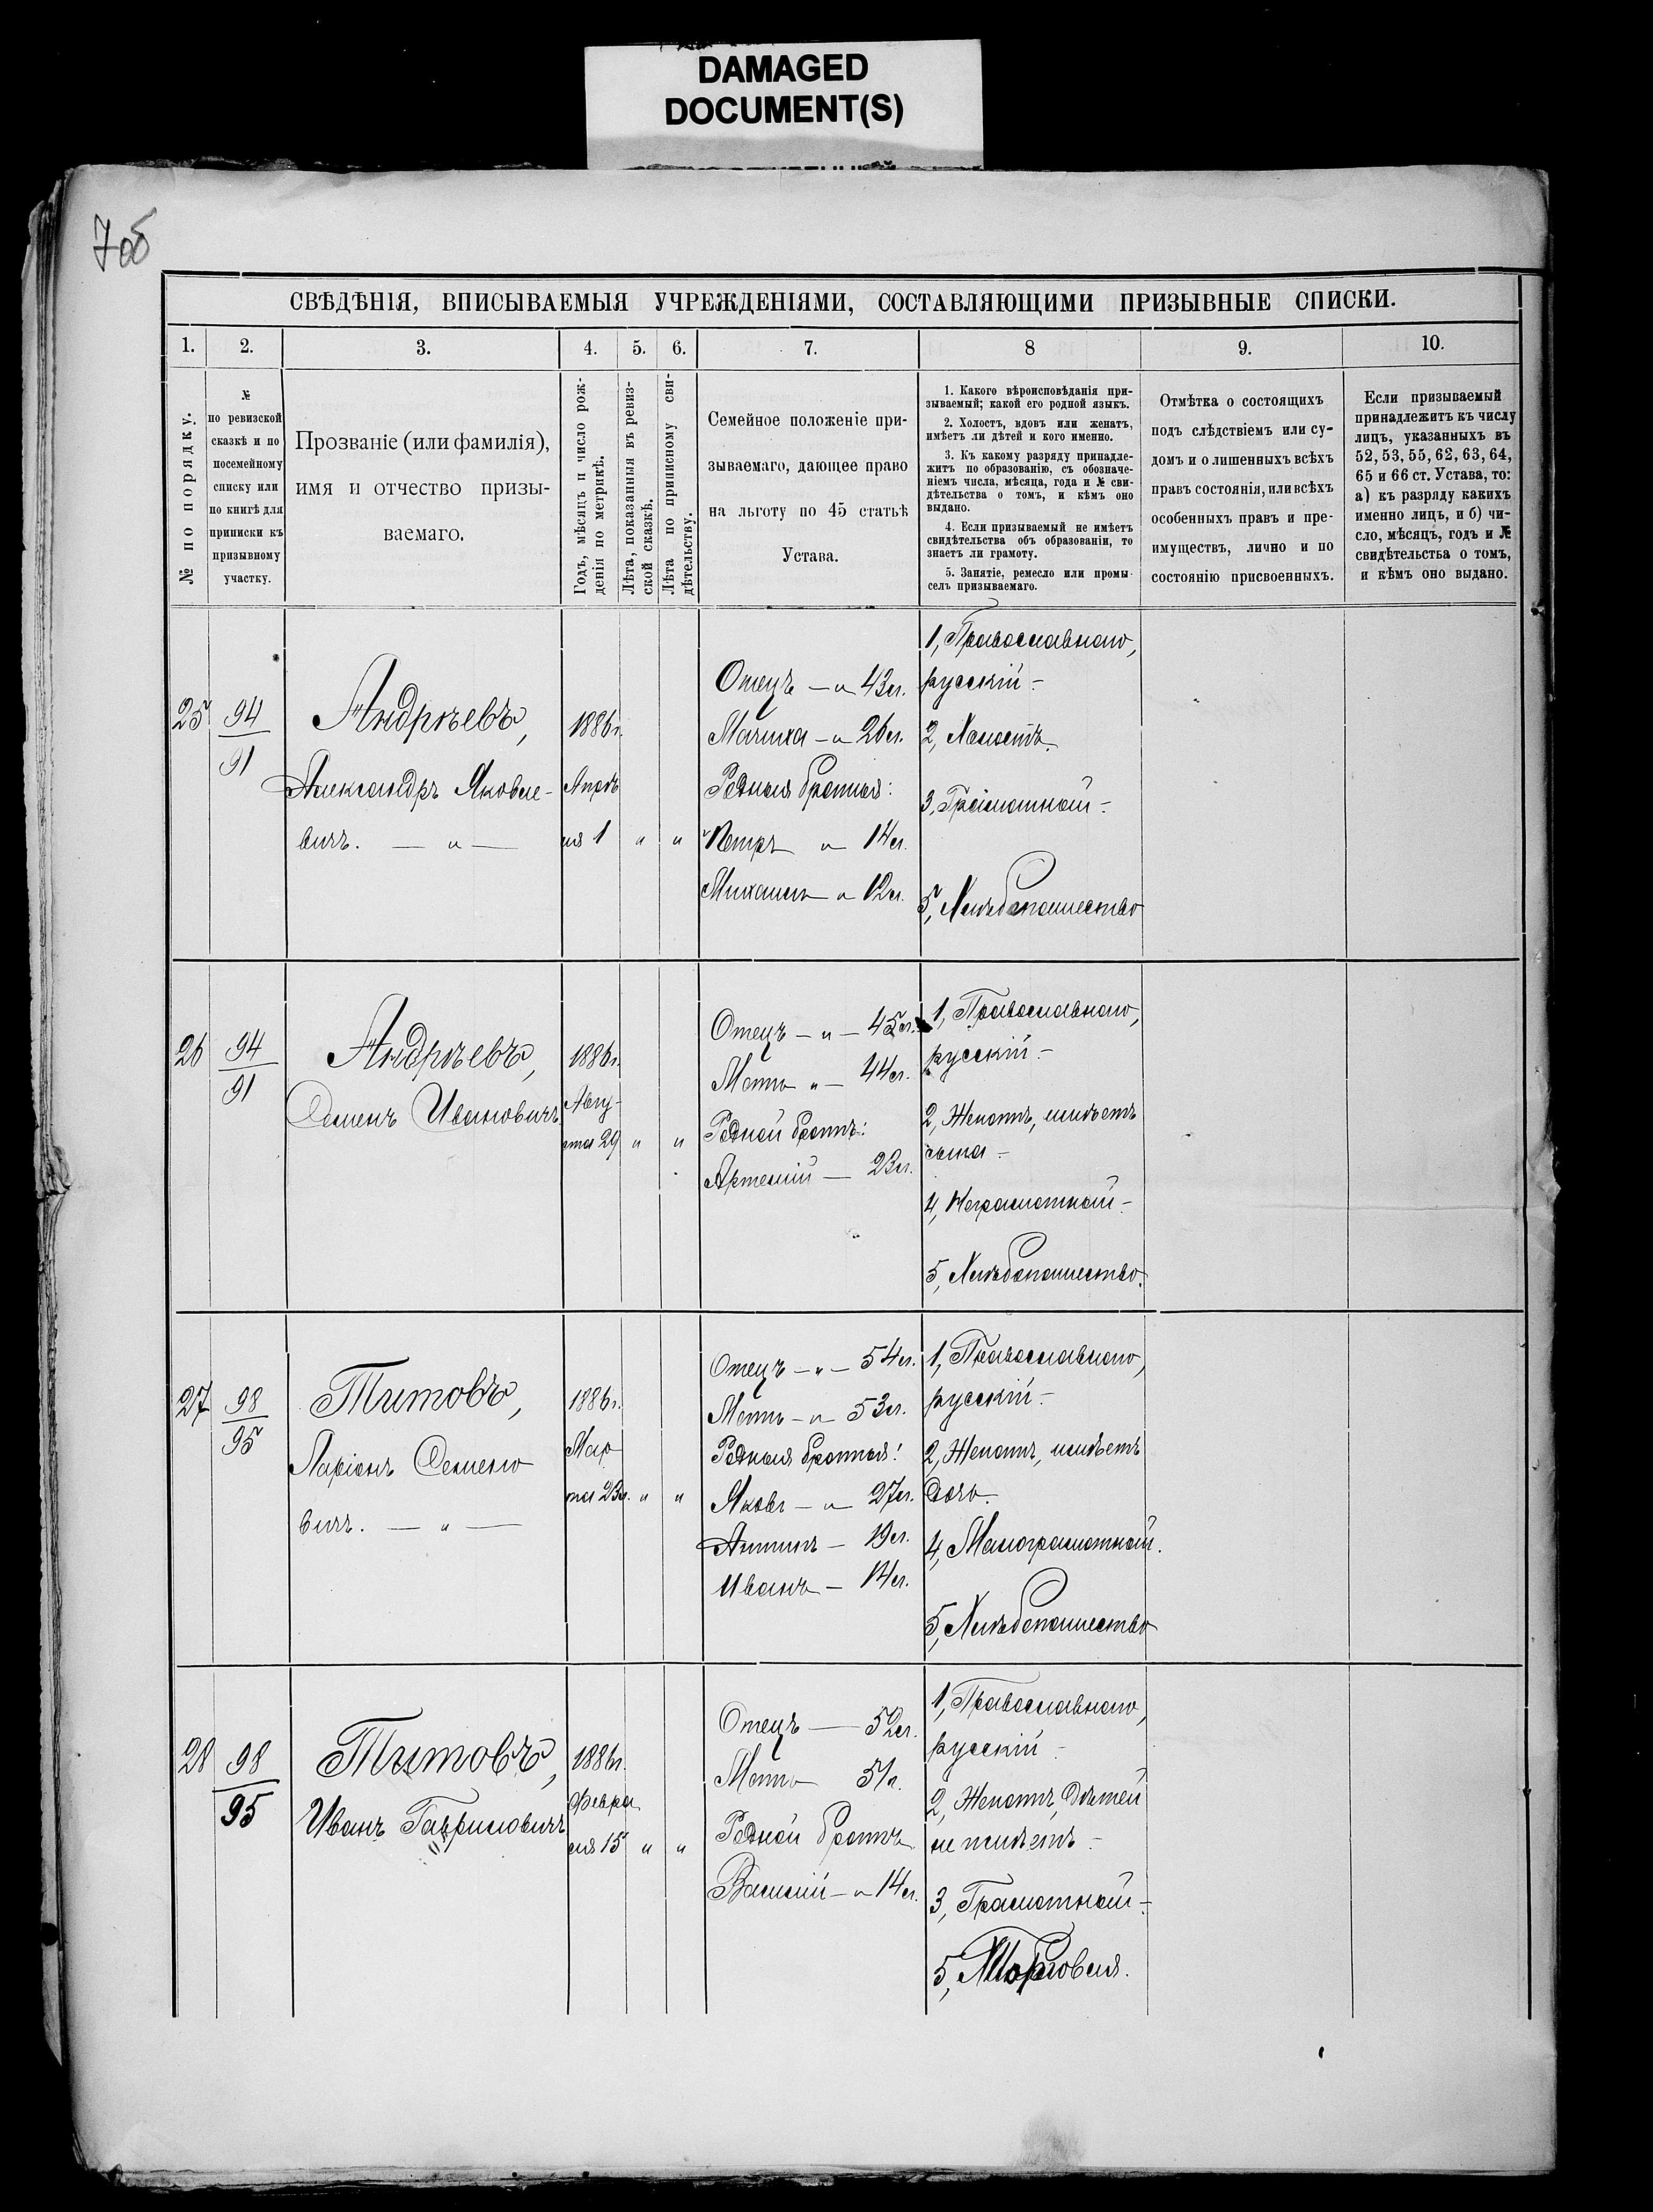 DAMAGED
DOCUMENT(S)
7об
СВѢДѢНІЯ, ВПИСЫВАЕМЫЯ УЧРЕЖДЕНІЯМИ, СОСТАВЛЯЮЩИМИ ПРИЗЫВНЫЕ СПИСКИ.
1. 2. 3. 4. 5. 6. 7. 8 9. 10.
№ по порядку.
№
по ревизской
сказкѣ и по
посемейному
списку или
по книгѣ для
приписки къ
призывному
участку.
Прозваніе (или фамилія),
имя и отчество призы-
ваемаго.
Годъ, мѣсяцъ и число рож-
денія по метрикѣ.
Лѣта, показанныя въ ревиз-
ской сказкѣ.
Лѣта по приписному сви-
дѣтельству.
Семейное положеніе при-
зываемаго, дающее право
на льготу по 45 статьѣ
Устава.
1. Какого вѣроисповѣданія при-
зываемый; какой его родной языкъ.
2. Холостъ, вдовъ или женатъ,
имѣетъ ли дѣтей и кого именно.
3. Къ какому разряду принадле-
житъ по образованію, съ обозначе-
ніемъ числа, мѣсяца, года и № сви-
дѣтельства о томъ, и кѣмъ оно
выдано.
4. Если призываемый не имѣетъ
свидѣтельства объ образованіи, то
знаетъ ли грамоту.
5. Занятіе, ремесло или промы-
селъ призываемаго.
Отмѣтка о состоящихъ
подъ слѣдствіемъ или су-
домъ и о лишенныхъ всѣхъ
правъ состоянія, или всѣхъ
особенныхъ правъ и пре-
имуществъ, лично и по
состоянію присвоенныхъ.
Если призываемый
принадлежитъ къ числу
лицъ, указанныхъ въ
52, 53, 55, 62, 63, 64,
65 и 66 ст. Устава, то:
а) къ разряду какихъ
именно лицъ, и б) чи-
сло, мѣсяцъ, годъ и №
свидѣтельства о томъ,
и кѣмъ оно выдано.
25
94
91
Андрѣевъ,
Александръ Яковле-
вичъ. — „ —
1886г.
Апрѣ
ля 1 „ „
Отецъ — „ 43л.
Мачиха — „ 26л.
Родныя братья:
Петръ „ 14л.
Михаилъ „ 12л.
1, Православнаго,
русскій —
2, Холостъ.
3, Грамотный —
5, Хлѣбопашество
26
94
91
Андрѣевъ,
Семенъ Ивановичъ
1886г.
Авгу-
ста 29 „ „
Отецъ — „ — 45л.
Мать „ — 44л.
Родной братъ:
Артемій — 23л.
1, Православнаго,
русскій —
2, Женатъ, имѣетъ
сына —
4, Неграмотный —
5, Хлѣбопашество.
27
98
95
Титовъ,
Ларіонъ Семено
вичъ. — „ —
1886г.
Мар
та 23д. „ „
Отецъ — „ — 54л.
Мать — „ 53л.
Родныя братья!
Яковъ — „ 27л.
Антипъ — 19л.
Иванъ — 14л.
1, Православнаго,
русскій —
2, Женатъ, имѣетъ
дочь.
4, Малограмотный.
5, Хлѣбопашество
28
98
95
Титовъ,
Иванъ Гавриловичъ
1886г.
Февра
ля 15 „ „
Отецъ — 52л.
Мать 51л.
Родной братъ
Василій — „ 14л.
1, Православнаго,
русскій —
2, Женатъ, дѣтей
не имѣетъ —
3, Грамотный —
5, Торговля.